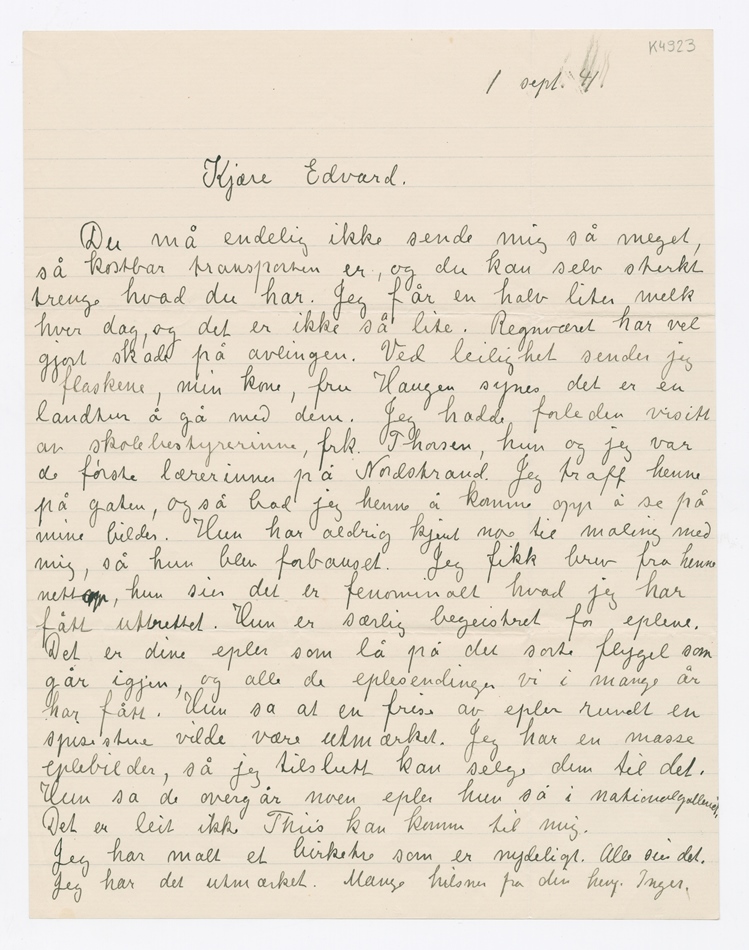 K4923
1 sept. 41.
Kjære Edvard.
Du må endelig ikke sende mig så meget,
så kostbar transporten er, og du kan selv sterkt
trenge hvad du har. Jeg får en halv liter melk
hver dag, og det er ikke så lite. Regnværet har vel
gjort skade på avlingen. Ved leilighet sender jeg
flaskene, min kone, fru Haugen synes det er en
landtur å gå med dem. Jeg hadde forleden visitt
av skolebestyrerinne, frk. Thorsen, hun og jeg var
de første lærerinner på Nordstrand. Jeg traff henne
på gaten, og så bad jeg henne å komme opp å se på
mine bilder. Hun har aldrig kjent noe til maling med
mig, så hun blev forbauset. Jeg fikk brev fra henne
nettop, hun sier det er fenominalt hvad jeg har
fått uttrettet. Hun er særlig begeistret for eplene.
Det er dine epler som lå på det sorte flygel som
går igjen, og alle de eplesendinger vi i mange år
har fått. Hun sa at en frise av epler rundt en
spisestue vilde være utmærket. Jeg har en masse
eplebilder, så jeg tilslutt kan selge dem til det.
Hun sa de overgår noen epler hun så i nationalgalleriet.
Det er leit ikke Thiis kan komme til mig.
Jeg har malt et birketre som er nydeligt. Alle sier det.
Jeg har det utmærket. Mange hilsner fra din heng. Inger.